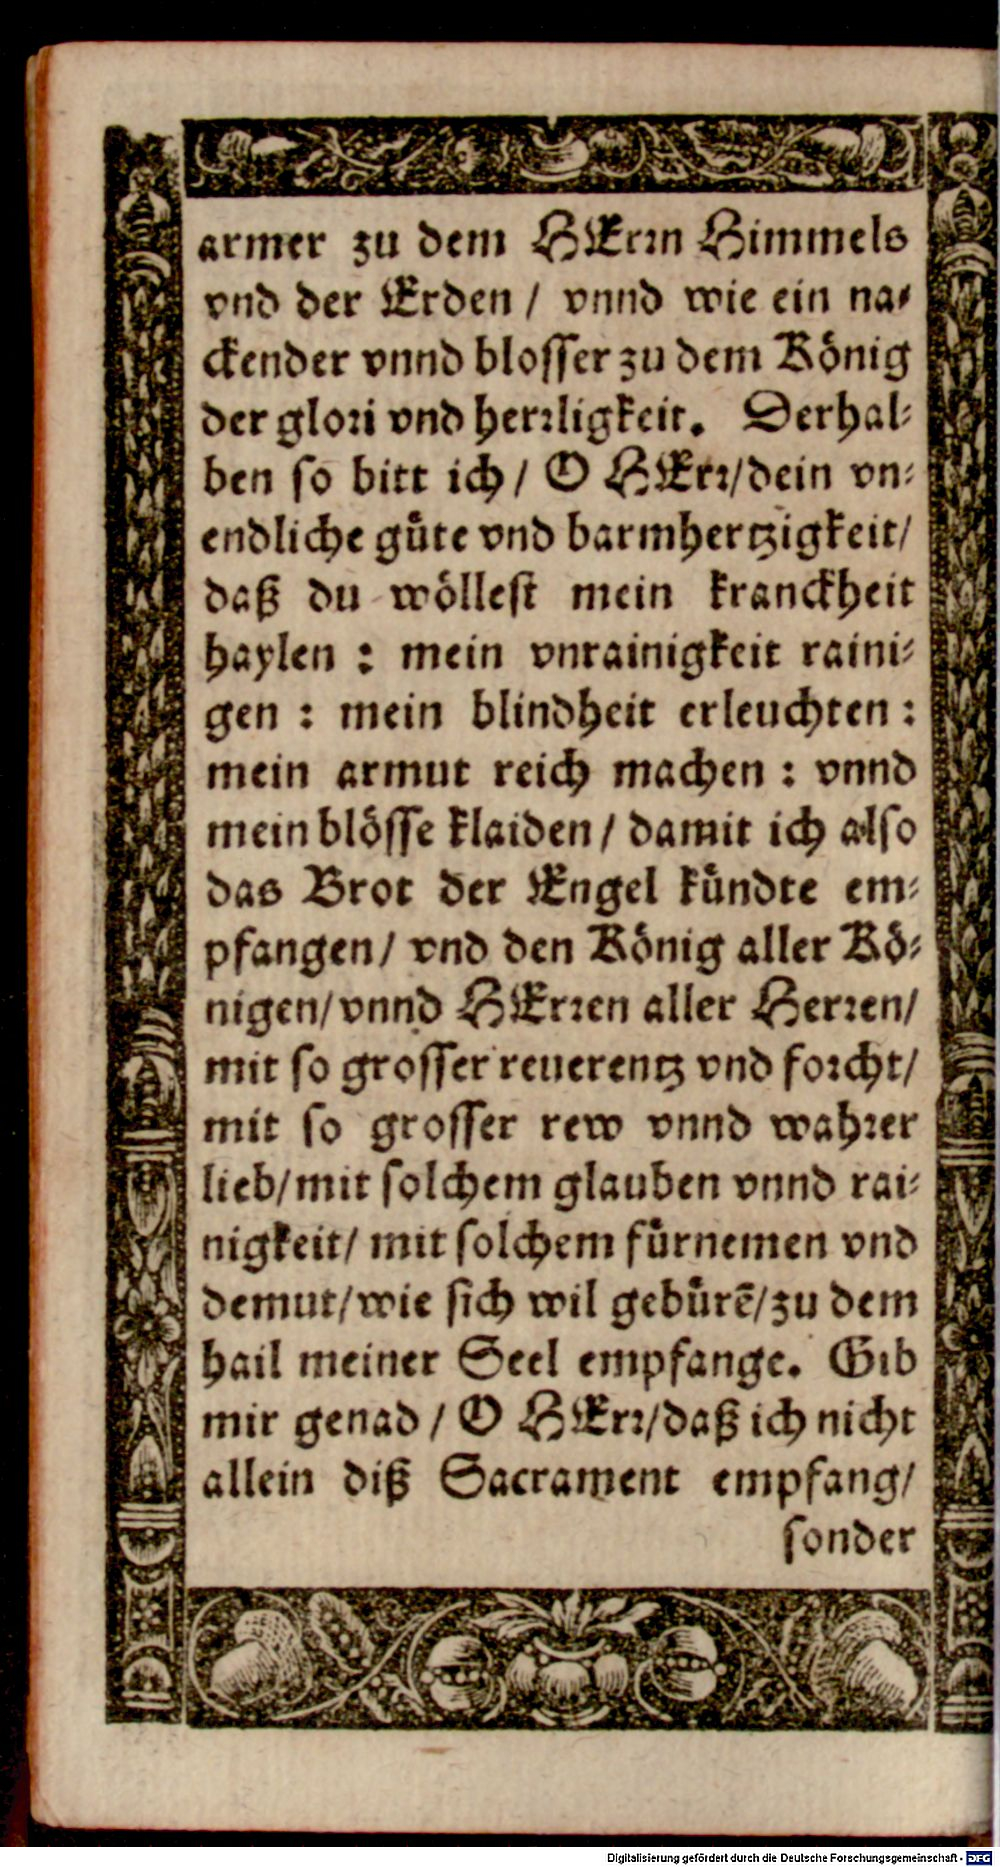 armer zu dem HErꝛn Himmels
vnd der Erden / vnnd wie ein na⸗
ckender vnnd blosser zu dem König
der gloꝛi vnd herꝛligkeit. Derhal⸗
ben so bitt ich / O HErꝛ/dein vn⸗
endliche guͤte vnd barmhertzigkeit/
daß du wöllest mein kranckheit
haylen : mein vnrainigkeit raini⸗
gen : mein blindheit erleuchten :
mein armut reich machen : vnnd
mein blösse klaiden / damit ich also
das Brot der Engel kuͤndte em⸗
pfangen/ vnd den König aller Kö⸗
nigen/vnnd HErꝛen aller Herꝛen/
mit so grosser reuerentz vnd foꝛcht/
mit so grosser rew vnnd wahꝛer
lieb/mit solchem glauben vnnd rai⸗
nigkeit/ mit solchem fuͤrnemen vnd
demut/wie sich wil gebuͤrẽ/zu dem
hail meiner Seel empfange. Gib
mir genad / O HErꝛ/daß ich nicht
allein diß Sacrament empfang/
sonder
Digitalisierung gefördert durch die Deutsche Forschungsgemeinschaft - DFG